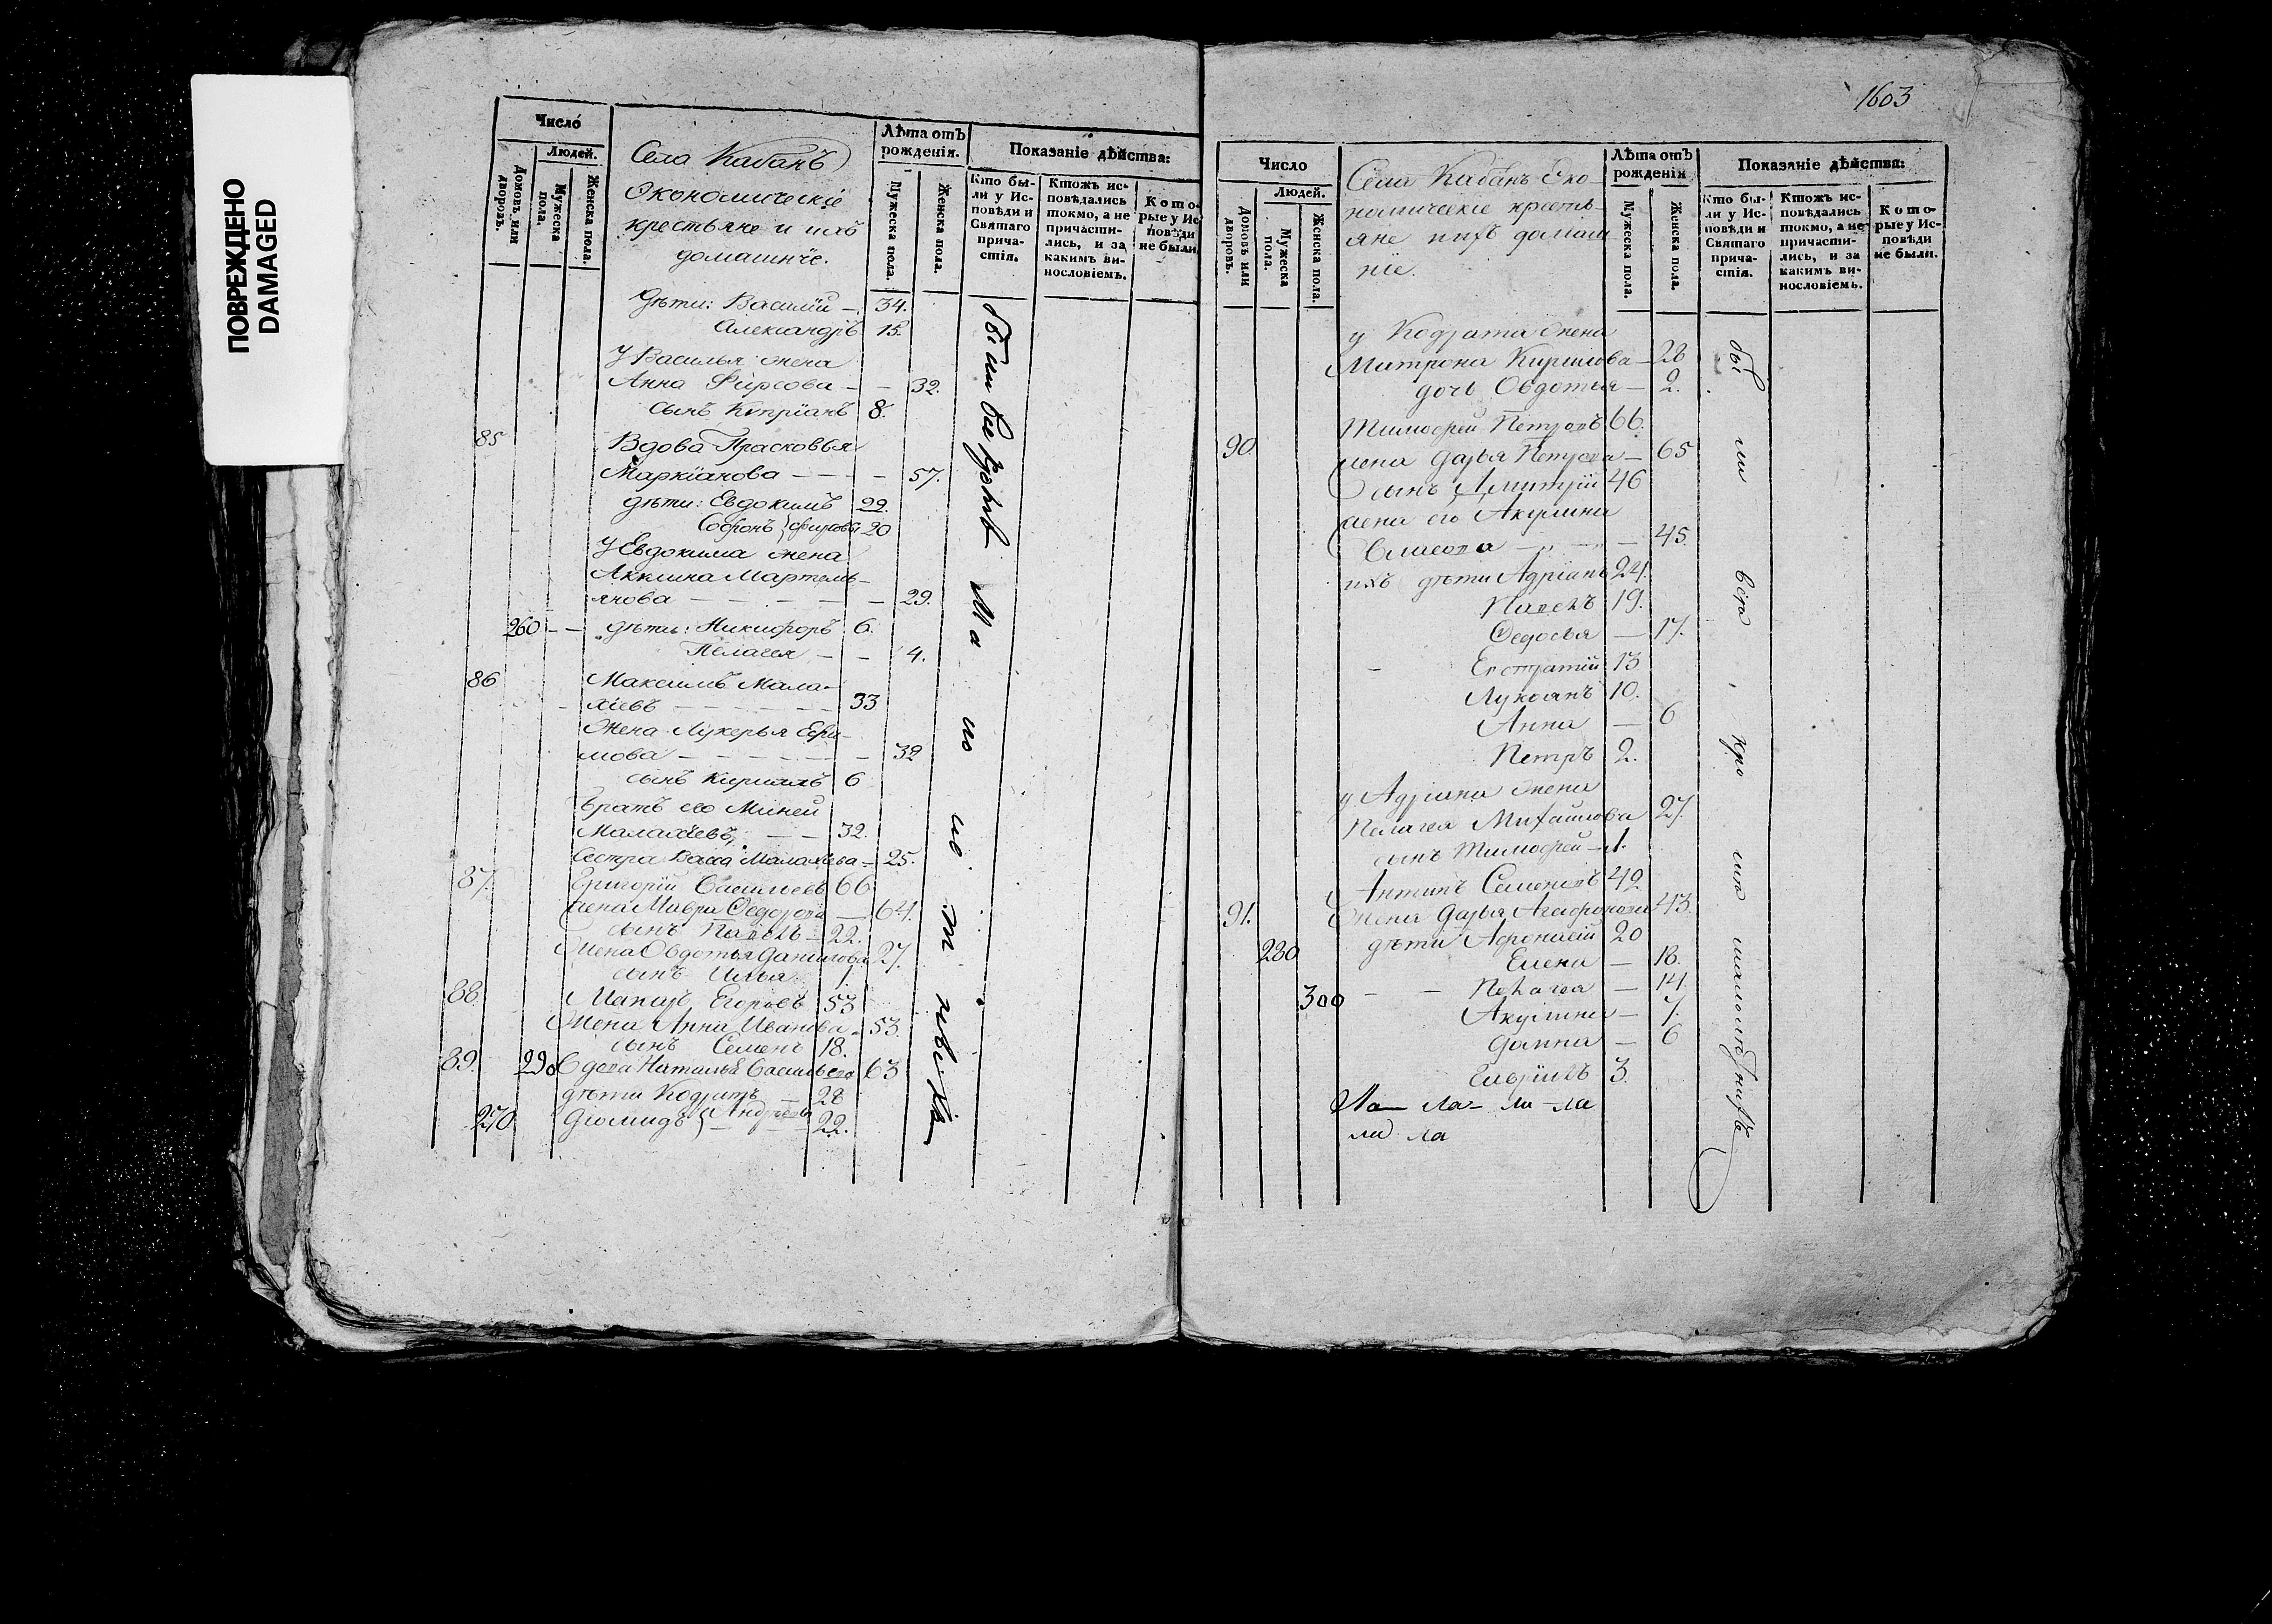 ПОВРЕЖДЕНО
DAMAGED
Число
Людей.
Домовъ или дворовъ.
Мужеска пола.
Женска пола.
Села Кабанъ
Экономическіе
крестьяне и ихъ
домашнѣе.
Лѣта отъ рожденія.
Мужеска пола.
Женска пола.
Показаніе дѣйства:
Кто бы-
ли у Ис-
повѣди и
Святаго
прича-
стія.
Ктожъ ис-
повѣдались
токмо, а не
причасти-
лись, и за
какимъ ви-
нословіемъ.
Кото-
рые у Ис
повѣди
не были
дѣти: Василій — 34.
Александръ 15.
У Василья жена
Анна Фирсова — — 32.
сынъ Кипріанъ 8.
85 Вдова Прасковья
Маркіанова — — — 57.
дѣти: Евдокимъ 22.
Софронъ } Фирсовы 20
У Евдокима жена
Акилина Мартемь-
янова — — — — — 29.
260 — — дѣти: Никифоръ 6.
Пелагея — — 4.
86 Максимъ Мала-
хіевъ — — — — — 33
Жена Лукерья Ефи-
мова — — — — — 32
сынъ Кирилъ 6
Братъ его Миней
Малахіевъ — — 32.
Сестра Васса Малахіева — 25.
87. Григорій Васильевъ 66
жена Мавра Федорова — 64.
сынъ Павелъ — 22.
Жена Овдотья Данилова 27.
сынъ Илья 1.
88. Егоровъ 53
Жена Анна Иванова — 53.
сынъ Семенъ 18.
89. 290 Вдова Наталья Васильева 63
дѣти Кодратъ — 28
270 Діомидъ } Андреевы 22.
были всѣ
1603
Число
Людей.
Домовъ или дворовъ.
Мужеска пола.
Женска пола.
Села Кабанъ Эко-
номическіе кресть-
яне ихъ домаш-
ніе.
Лѣта отъ рожденія
Мужеска пола.
Женска пола.
Показаніе дѣйства:
Кто бы-
ли у Ис-
повѣди и
Святаго
прича-
стія.
Ктожъ ис-
повѣдались
токмо, а не
причасти-
лись, и за
какимъ ви-
нословіемъ.
Кото-
рые у Ис-
повѣди
не были.
у Кодрата жена
Матрона Кирилова — 28
дочь Овдотья — 2.
90. Тимофей Петровъ 66.
жена Дарья Петрова — 65
сынъ Дмитрій 46
жена его Акулина
Власова — — — 45.
ихъ дѣти Адріанъ 24.
Павелъ 19.
Федосья — 17.
Евстратій 13
Лукоянъ 10.
Анна — 6
Петръ 2.
у Адріана жена
Пелагея Михайлова 27.
сынъ Тимофей — 1.
Антипъ Семеновъ 49
91. Жена Дарья Агафонова 43.
280 дѣти Афонасій 20
Елена — 18.
300 — — Пелагея — 14.
Акулина — 7.
Домна — 6
Гаврилъ 3.
были всѣ кро